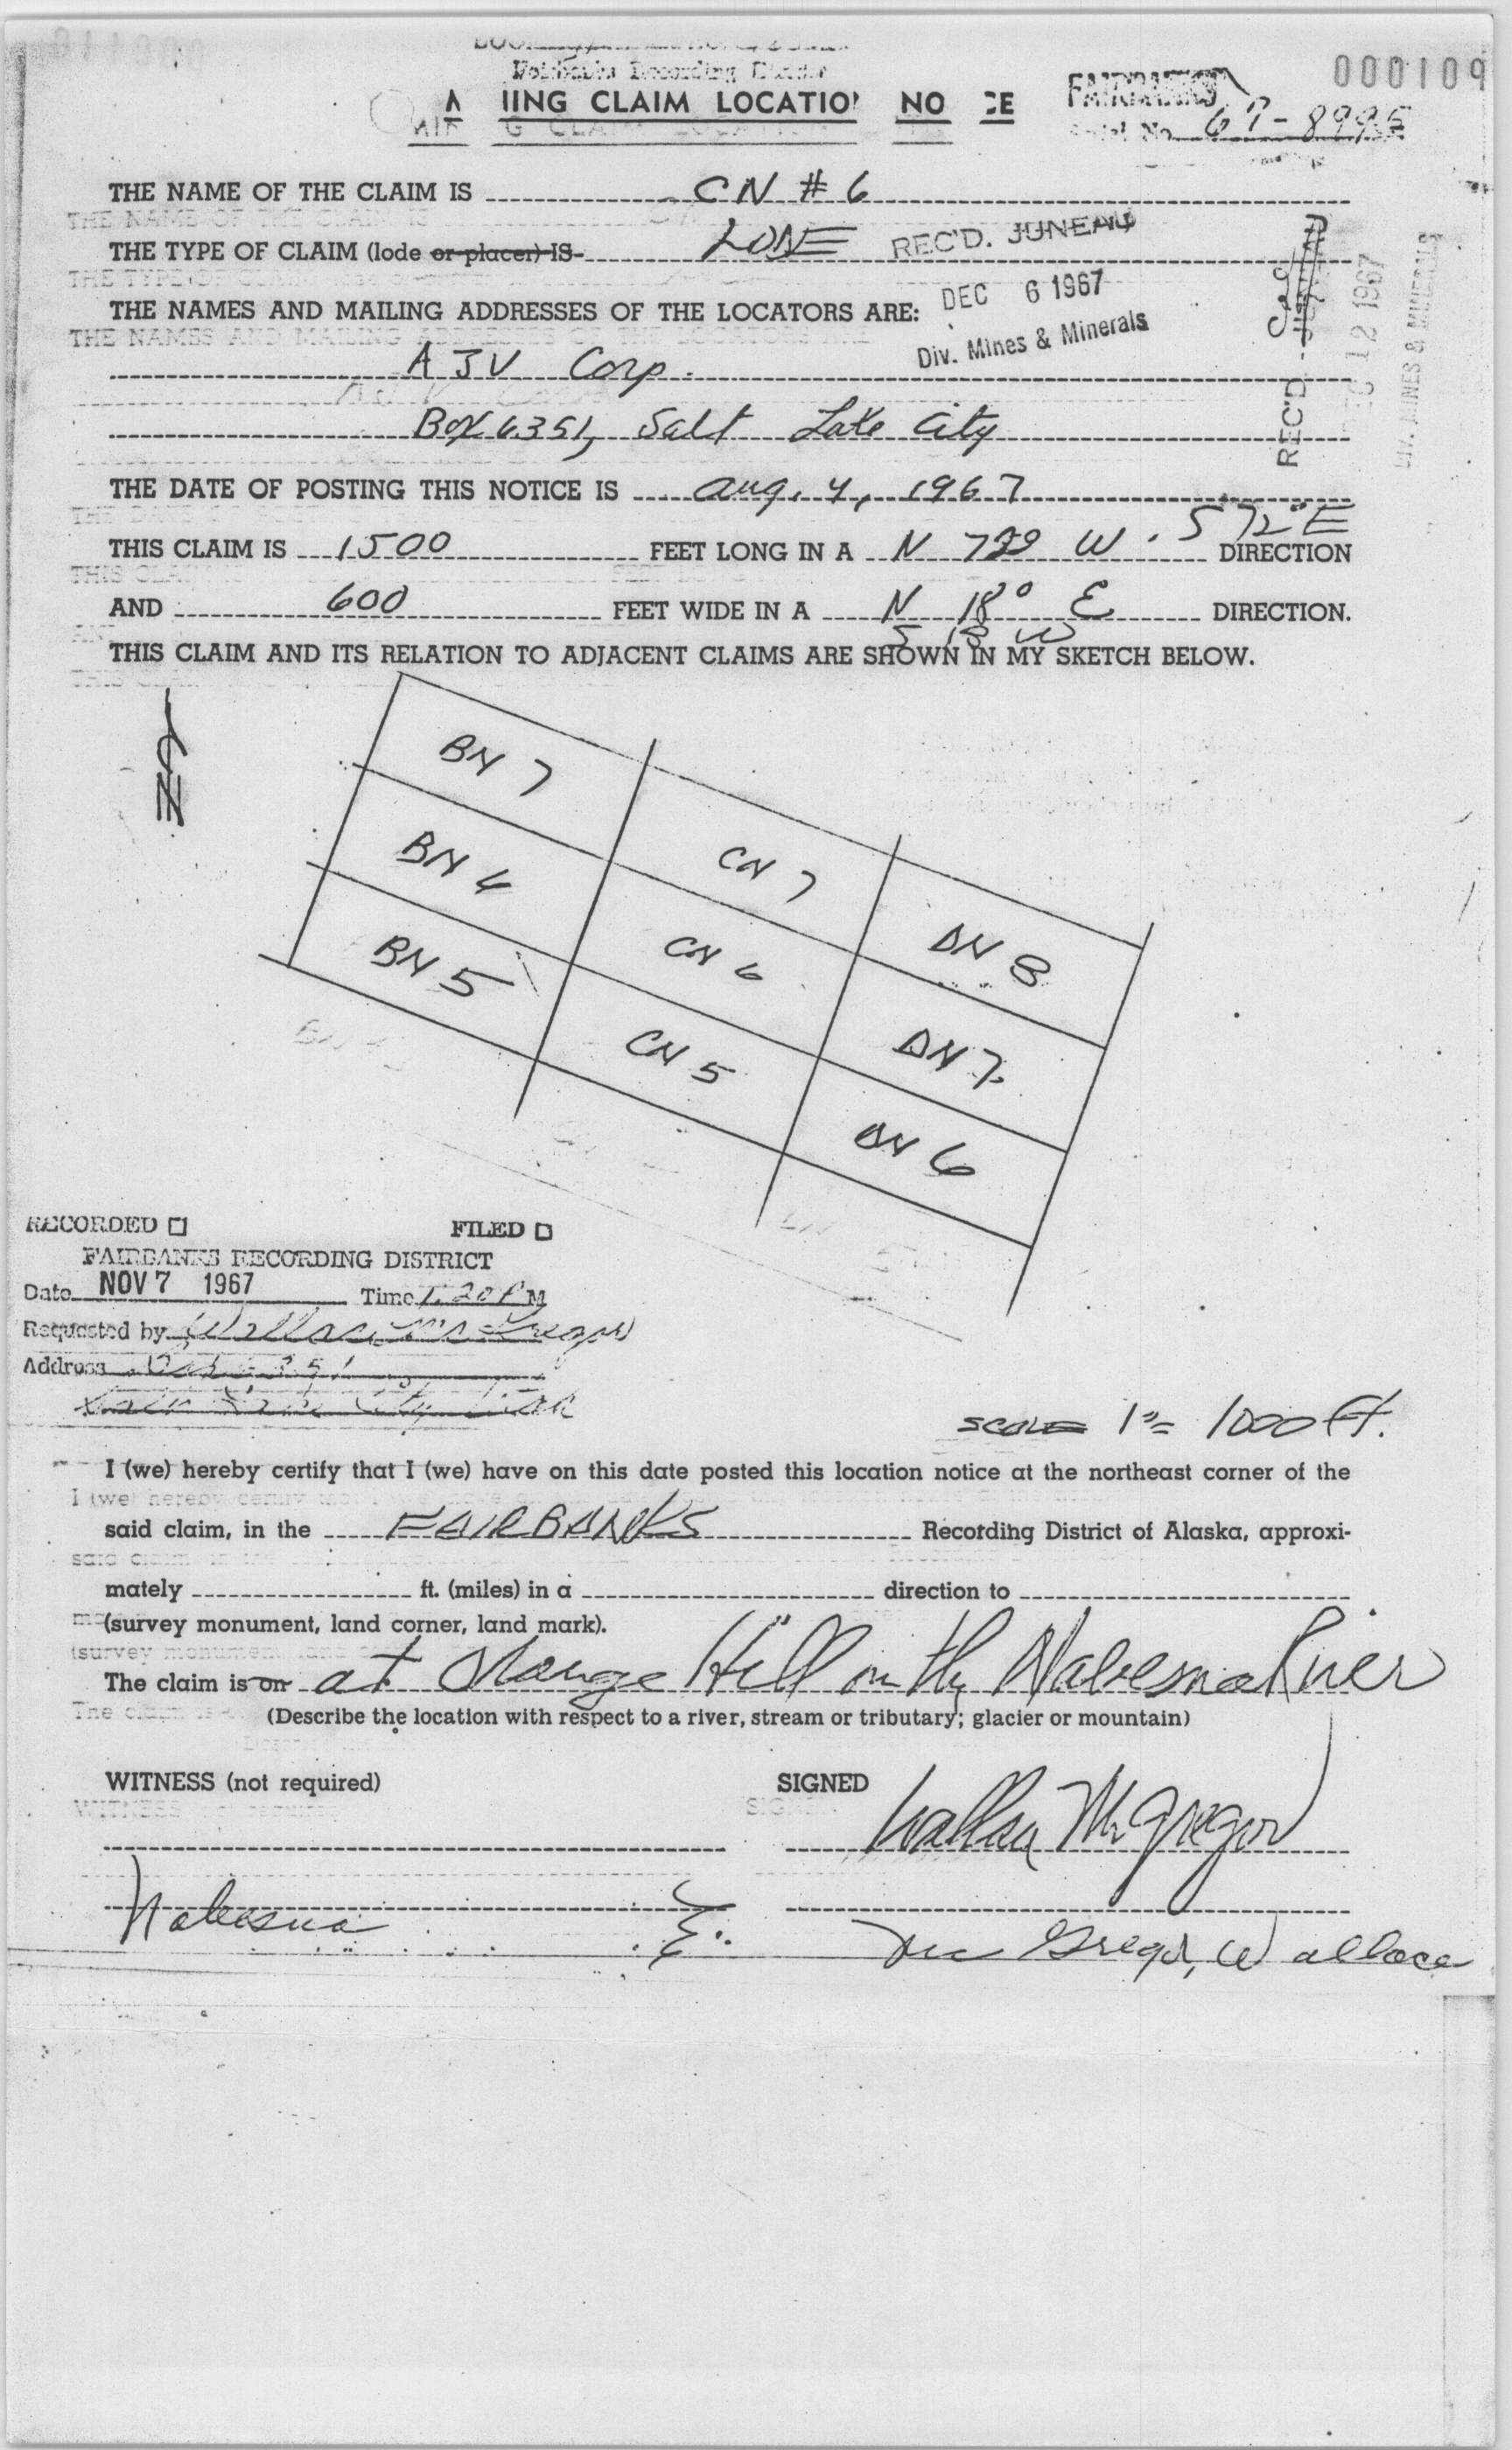 000109
Fairbanks Recording District
MINING CLAIM LOCATION NOTICE
FAIRBANKS
Serial No. 67-8995
THE NAME OF THE CLAIM IS CN # 6
THE TYPE OF CLAIM (lode or placer) IS LODE
REC'D. JUNEAU
DEC 6 1967
Div. Mines & Minerals
REC'D. JUNEAU
DEC 12 1967
DIV. MINES & MINERALS
THE NAMES AND MAILING ADDRESSES OF THE LOCATORS ARE:
AJV Corp.
Box 6351, Salt Lake City
THE DATE OF POSTING THIS NOTICE IS Aug. 4, 1967
THIS CLAIM IS 1500 FEET LONG IN A N 72° W. S 72° E DIRECTION
AND 600 FEET WIDE IN A N 18° E DIRECTION.
S 18 W
THIS CLAIM AND ITS RELATION TO ADJACENT CLAIMS ARE SHOWN IN MY SKETCH BELOW.
N
BN 7
BN 6
CN 7
BN 5
CN 6
DN 8
CN 5
DN 7
DN 6
RECORDED FILED
FAIRBANKS RECORDING DISTRICT
Date NOV 7 1967 Time 1:20 P M
Requested by Wallace McGregor
Address Box 6351
Salt Lake City Utah
scale 1" = 1000 ft.
I (we) hereby certify that I (we) have on this date posted this location notice at the northeast corner of the
said claim, in the FAIRBANKS Recording District of Alaska, approxi-
mately ft. (miles) in a direction to
(survey monument, land corner, land mark).
The claim is on at Orange Hill on the Nabesna River
(Describe the location with respect to a river, stream or tributary; glacier or mountain)
WITNESS (not required) SIGNED
Wallace McGregor
Nabesna
McGregor, Wallace